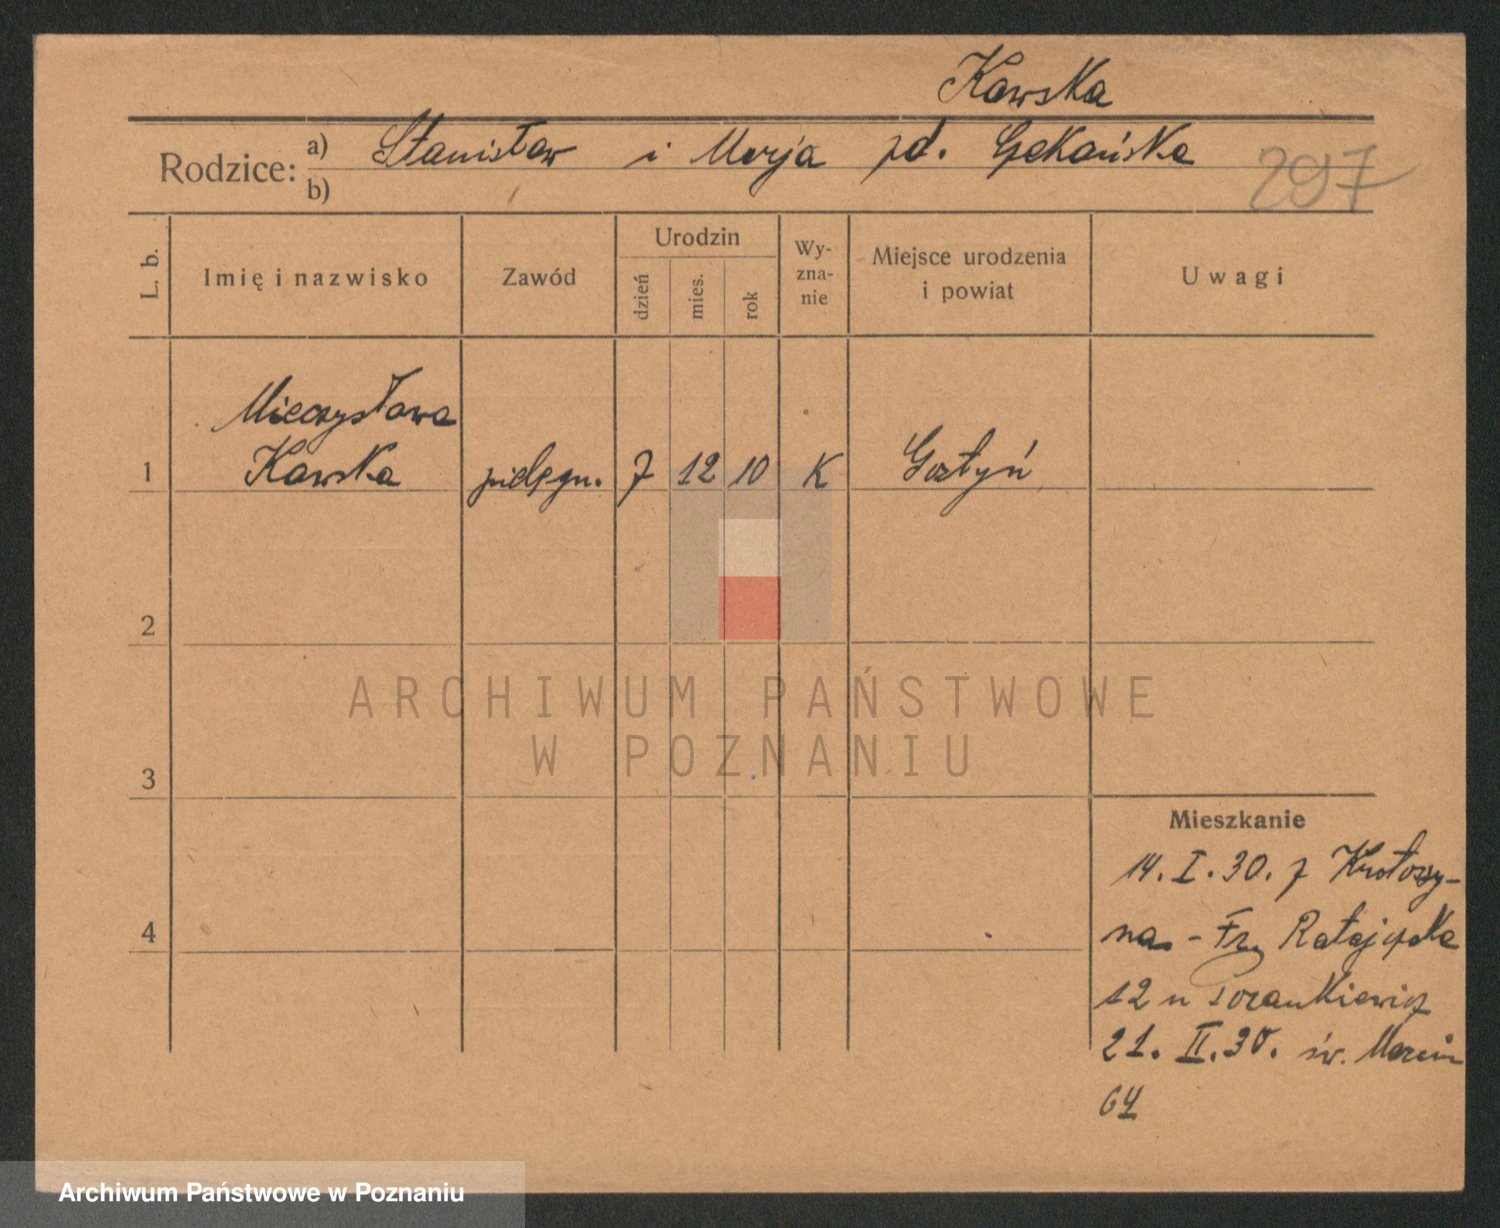 Kawska
Rodzice: a) Stanisław i Marja zd.
b)
297
L. b.
Imię i nazwisko
Zawód
Urodzin
dzień
mies.
rok
Wy-
zna-
nie
Miejsce urodzenia
i powiat
Uwagi
Mieczysława
1 Kawska pielęgn. 7 12 10 K Gostyń
2
3
4
ARCHIWUM PAŃSTWOWE
W POZNANIU
Mieszkanie
14. I. 30. z Krotoszy-
na - Fr. Ratajczaka
12 u
21. II. 30. św. Marcin
64
Archiwum Państwowe w Poznaniu